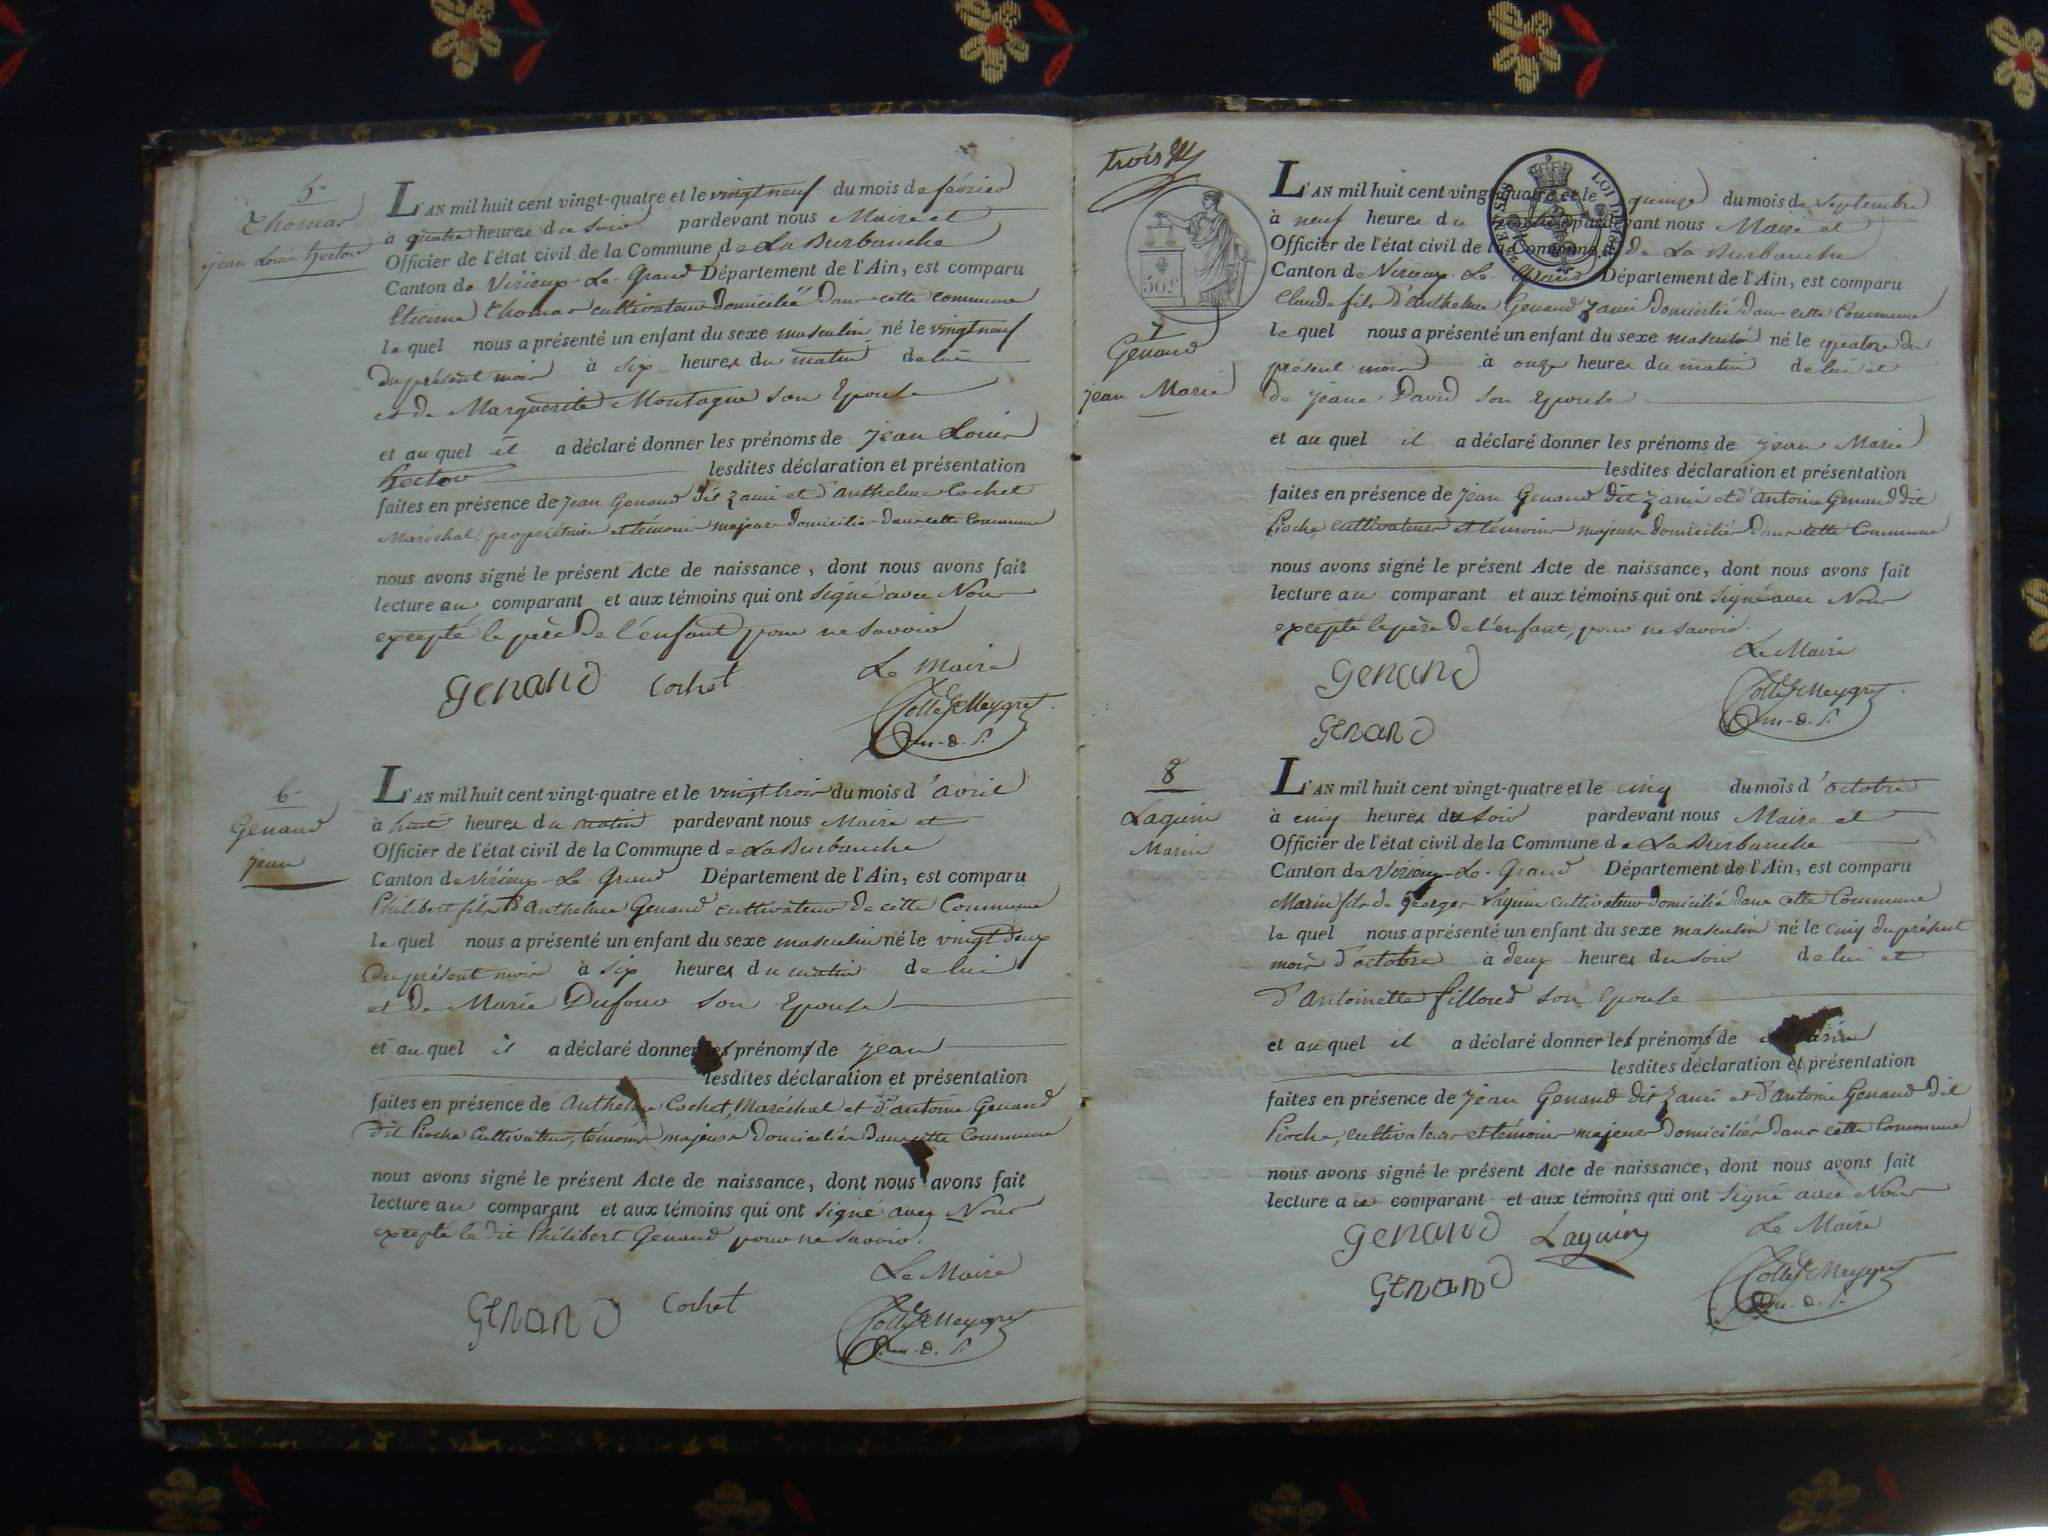 5.
Thomas
jean Louis hector
L'AN mil huit cent vingt-quatre et le vingt neuf du mois de février
à quatre heures du soir pardevant nous Maire et
Officier de l'état civil de la Commune de La Burbanche
Canton de Virieux-Le-Grand Département de l'Ain, est comparu
Etienne Thomas cultivateur domicilié dans cette commune
le quel nous a présenté un enfant du sexe masculin né le vingt neuf
du présent mois à six heures du matin de lui
et de Marguerite Montagne son Epouse
et au quel il a déclaré donner les prénoms de jean Louis
hector lesdites déclaration et présentation
faites en présence de jean Genand dit zami et d'anthelme Cochet
Maréchal, propriétaires et témoins majeurs domiciliés dans cette Commune
nous avons signé le présent Acte de naissance, dont nous avons fait
lecture au comparant et aux témoins qui ont signé avec Nous
excepté le père de l'enfant pour ne savoir
Genand Cochet Le Maire
6
Genand
jean
L'AN mil huit cent vingt-quatre et le vingt trois du mois d'avril
à huit heures du matin pardevant nous Maire et
Officier de l'état civil de la Commune de La Burbanche
Canton de Virieux-Le-Grand Département de l'Ain, est comparu
Philibert fils d'anthelme Genand cultivateur de cette Commune
le quel nous a présenté un enfant du sexe masculin né le vingt deux
du présent mois à six heures du matin de lui
et de Marie Dufour son Epouse
et au quel il a déclaré donner les prénoms de jean
lesdites déclaration et présentation
faites en présence de anthelme Cochet, Maréchal et d'antoine Genand
dit Pioche cultivateur, témoins majeurs domiciliés dans cette Commune
nous avons signé le présent Acte de naissance, dont nous avons fait
lecture au comparant et aux témoins qui ont signé avec Nous
excepté le dit Philibert Genand pour ne savoir.
Le Maire
Genand Cochet
trois
50c
7
Genand
jean Marie
L'AN mil huit cent vingt-quatre et le quinze du mois de septembre
à neuf heures du pardevant nous Maire et
Officier de l'état civil de la Commune de La Burbanche
Canton de Virieux-Le-Grand Département de l'Ain, est comparu
Claude fils d'anthelme Genand zami domicilié dans cette Commune
le quel nous a présenté un enfant du sexe masculin né le quatorze du
présent mois à onze heures du matin de lui et
de jeane David son Epouse
et au quel il a déclaré donner les prénoms de jean Marie
lesdites déclaration et présentation
faites en présence de jean Genand dit zami et d'antoine Genand dit
Pioche cultivateurs et témoins majeurs domiciliés dans cette Commune
nous avons signé le présent Acte de naissance, dont nous avons fait
lecture au comparant et aux témoins qui ont signé avec Nous
excepté le père de l'enfant, pour ne savoir.
Le Maire
Genand
Genand
8
Laquin
Marin
L'AN mil huit cent vingt-quatre et le cinq du mois d'octobre
à cinq heures du soir pardevant nous Maire et
Officier de l'état civil de la Commune de La Burbanche
Canton de Virieux-Le-Grand Département de l'Ain, est comparu
Marin fils de georges Laguin cultivateur domicilié dans cette Commune
le quel nous a présenté un enfant du sexe masculin né le cinq du présent
mois d'octobre à deux heures du soir de lui et
d'Antoinette filloud son Epouse
et au quel il a déclaré donner les prénoms de Marin
lesdites déclaration et présentation
faites en présence de jean Genand dit zami et d'antoine Genand dit
Pioche, cultivateurs et témoins majeurs domiciliés dans cette Commune
nous avons signé le présent Acte de naissance, dont nous avons fait
lecture au comparant et aux témoins qui ont signé avec Nous
Genand Laguin Le Maire
Genand